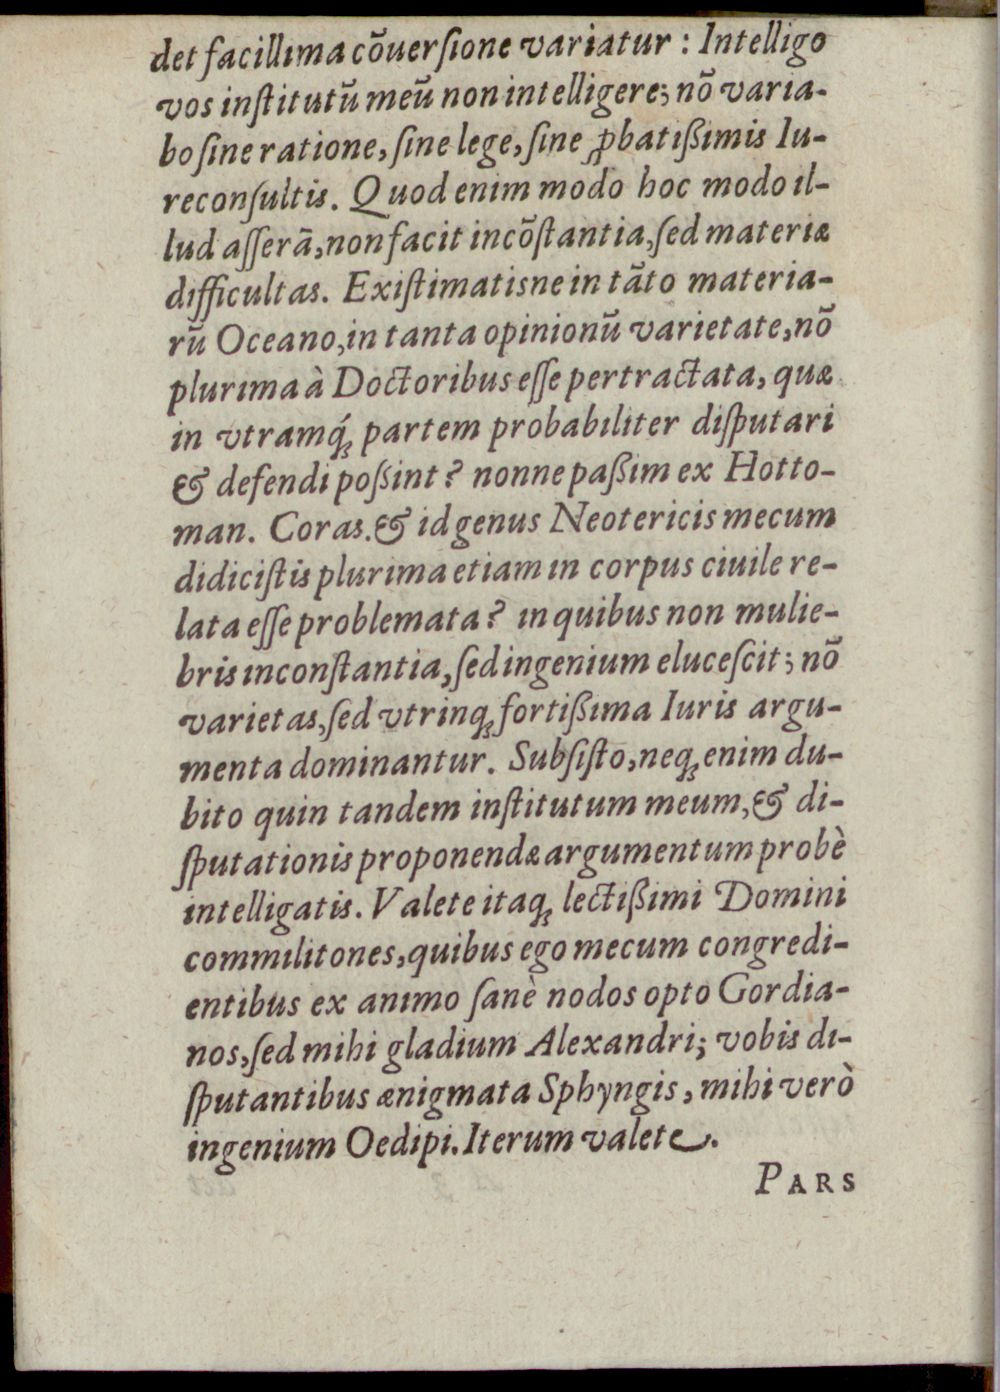 det facillima cōuerſione variatur : Intelligo
vos inſtitutū meū non intelligere; nō varia-
bo ſine ratione, ſine lege, ſine ꝓbatißimis Iu-
reconſultis. Quod enim modo hoc modo il-
lud aſſerā, non facit incōſtantia, ſed materiæ
difficultas. Exiſtimatisne in tāto materia-
rū Oceano, in tanta opinionū varietate, nō
plurima à Doctoribus eſſe pertractata, quæ
in vtramq́ꝫ partem probabiliter diſputari
& defendi poßint? nonne paßim ex Hotto-
man. Coras. & id genus Neotericis mecum
didiciſtis plurima etiam in corpus ciuile re-
lata eſſe problemata? in quibus non mulie-
bris inconſtantia, ſed ingenium eluceſcit; nō
varietas, ſed vtrinqꝫ fortißima Iuris argu-
menta dominantur. Subſiſto, neqꝫ enim du-
bito quin tandem inſtitutum meum, & di-
ſputationis proponendæ argumentum probè
intelligatis. Valete itaqꝫ lectißimi Domini
commilitones, quibus ego mecum congredi-
entibus ex animo ſanè nodos opto Gordia-
nos, ſed mihi gladium Alexandri; vobis di-
ſputantibus ænigmata Sphyngis, mihi verò
ingenium Oedipi. Iterum valete.
PARS